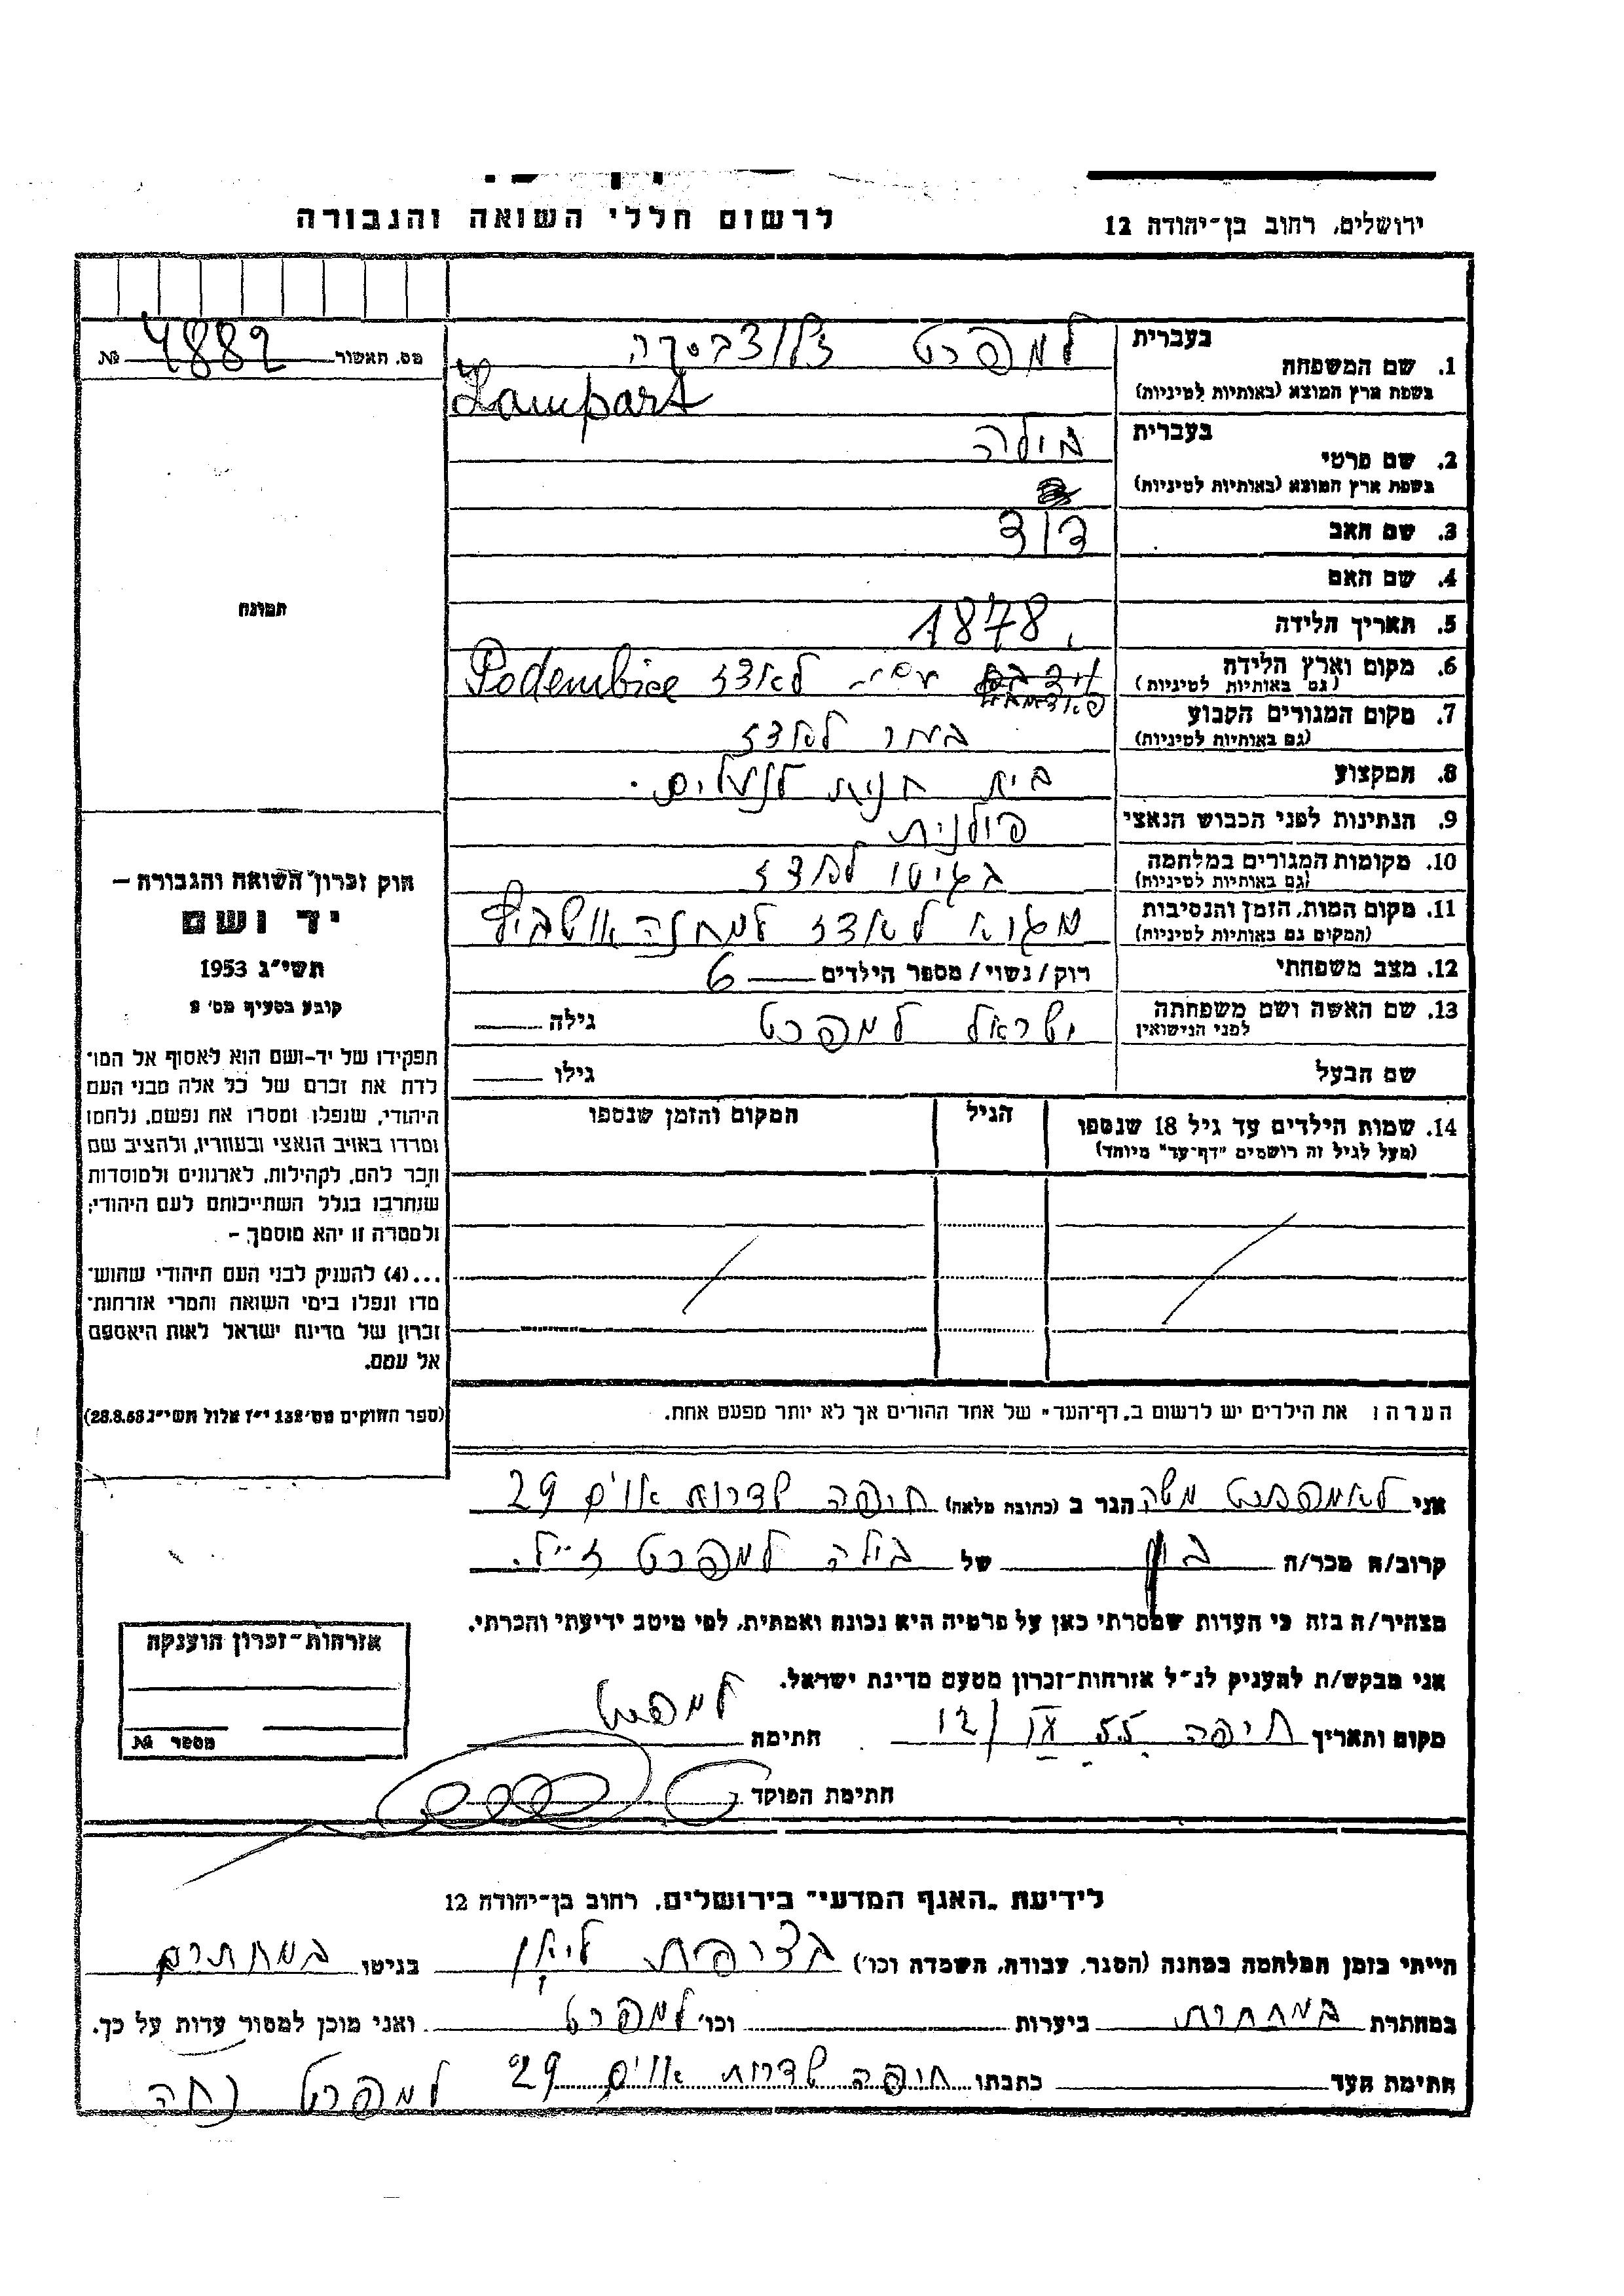 לרשום חללי השואה והגבורה
ירושלים, רחוב בן-יהודה 12
מס. האשור № 4882
1. שם המשפחה בעברית למפרט
בשפת ארץ המוצא (באותיות לטיניות) Lampart
2. שם פרטי בעברית בילה
בשפת ארץ המוצא (באותיות לטיניות)
3. שם האב דוד
4. שם האם
5. תאריך הלידה 1878
6. מקום וארץ הלידה לאדז Podembice
(גם באותיות לטיניות)
7. מקום המגורים הקבוע לאדז
(גם באותיות לטיניות)
8. המקצוע בית חנית לנעלים.
9. הנתינות לפני הכבוש הנאצי פולנית
10. מקומות המגורים במלחמה בגיטו לאדז
(גם באותיות לטיניות)
11. מקום המות, הזמן והנסיבות לאדז למחנה אושביץ
(המקום גם באותיות לטיניות)
12. מצב משפחתי רוק/נשוי/מספר הילדים 6
13. שם האשה ושם משפחתה ישראל למפרט גילה
לפני הנישואין
שם הבעל גילו
14. שמות הילדים עד גיל 18 שנספו הגיל המקום והזמן שנספו
(מעל לגיל זה רושמים "דף-עד" מיוחד)
הערה: את הילדים יש לרשום ב„דף-העד" של אחד ההורים אך לא יותר מפעם אחת.
תמונה
חוק זכרון השואה והגבורה –
יד ושם
תשי"ג 1953
קובע בסעיף מס' 2
תפקידו של יד-ושם הוא לאסוף אל המו־
לדת את זכרם של כל אלה מבני העם
היהודי, שנפלו ומסרו את נפשם, נלחמו
ומרדו באויב הנאצי ובעוזריו, ולהציב שם
וזכר להם, לקהילות, לארגונים ולמוסדות
שנחרבו בגלל השתייכותם לעם היהודי;
ולמטרה זו יהא מוסמך –
...(4) להעניק לבני העם היהודי שהוש־
מדו ונפלו בימי השואה והמרי אזרחות־
זכרון של מדינת ישראל לאות היאספם
אל עמם.
(ספר החוקים מס' 132 י"ז אלול תשי"ג 28.8.53)
אני לאמפרט משה הגר ב (כתובה מלאה) חיפה שדרות או'ם 29
קרוב/ה מכר/ה בן של בילה למפרט ז"ל.
מצהיר/ה בזה כי העדות שמסרתי כאן על פרטיה היא נכונה ואמתית, לפי מיטב ידיעתי והכרתי.
אני מבקש/ת להעניק לנ"ל אזרחות-זכרון מטעם מדינת ישראל.
מקום ותאריך חיפה 12/IX 55 חתימה למפרט
חתימת הפוקד
אזרחות-זכרון הוענקה
מספר №
לידיעת „האגף המדעי" בירושלים, רחוב בן-יהודה 12
הייתי בזמן המלחמה במחנה (הסגר, עבודה, השמדה וכו') בצרפת ליאון בגיטו
במחתרת במחתרת ביערות וכו' למפרט ואני מוכן למסור עדות על כך.
חתימת העד כתבתו חיפה שדרות או'ם 29 למפרט